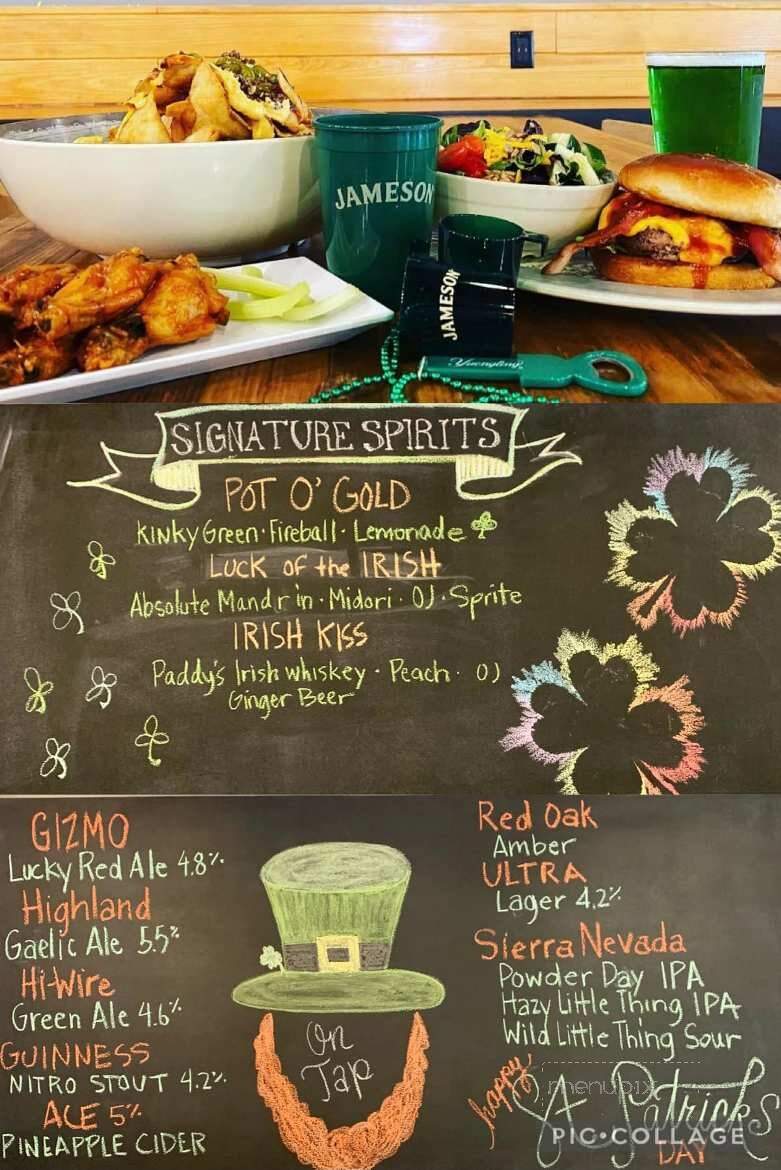 JAMESON
JAMESON
Yuengling
SIGNATURE SPIRITS
POT O' GOLD
Kinky Green · Fireball · Lemonade
Luck of the IRISH
Absolute Mandrin · Midori · OJ · Sprite
IRISH KISS
Paddy's Irish whiskey · Peach · OJ
Ginger Beer
GIZMO
Lucky Red Ale 4.8%
Highland
Gaelic Ale 5.5%
Hi-Wire
Green Ale 4.6%
GUINNESS
NITRO STOUT 4.2%
ACE 5%
PINEAPPLE CIDER
On
Tap
Red Oak
Amber
ULTRA
Lager 4.2%
Sierra Nevada
Powder Day IPA
Hazy Little Thing IPA
Wild Little Thing Sour
happy
St. Patrick's
DAY
menupix
PIC·COLLAGE